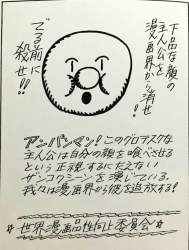 下品な顔の
主人公を
漫画界から消せ
でる前に
殺せ!!
アンパンマン!このグロテスクな
主人公は自分の顔を喰べさせる
という正視するにたえない
ザンコクシーンを演じている。
我々は漫画界から彼を追放する!
☆世界漫画品性向上委員会☆